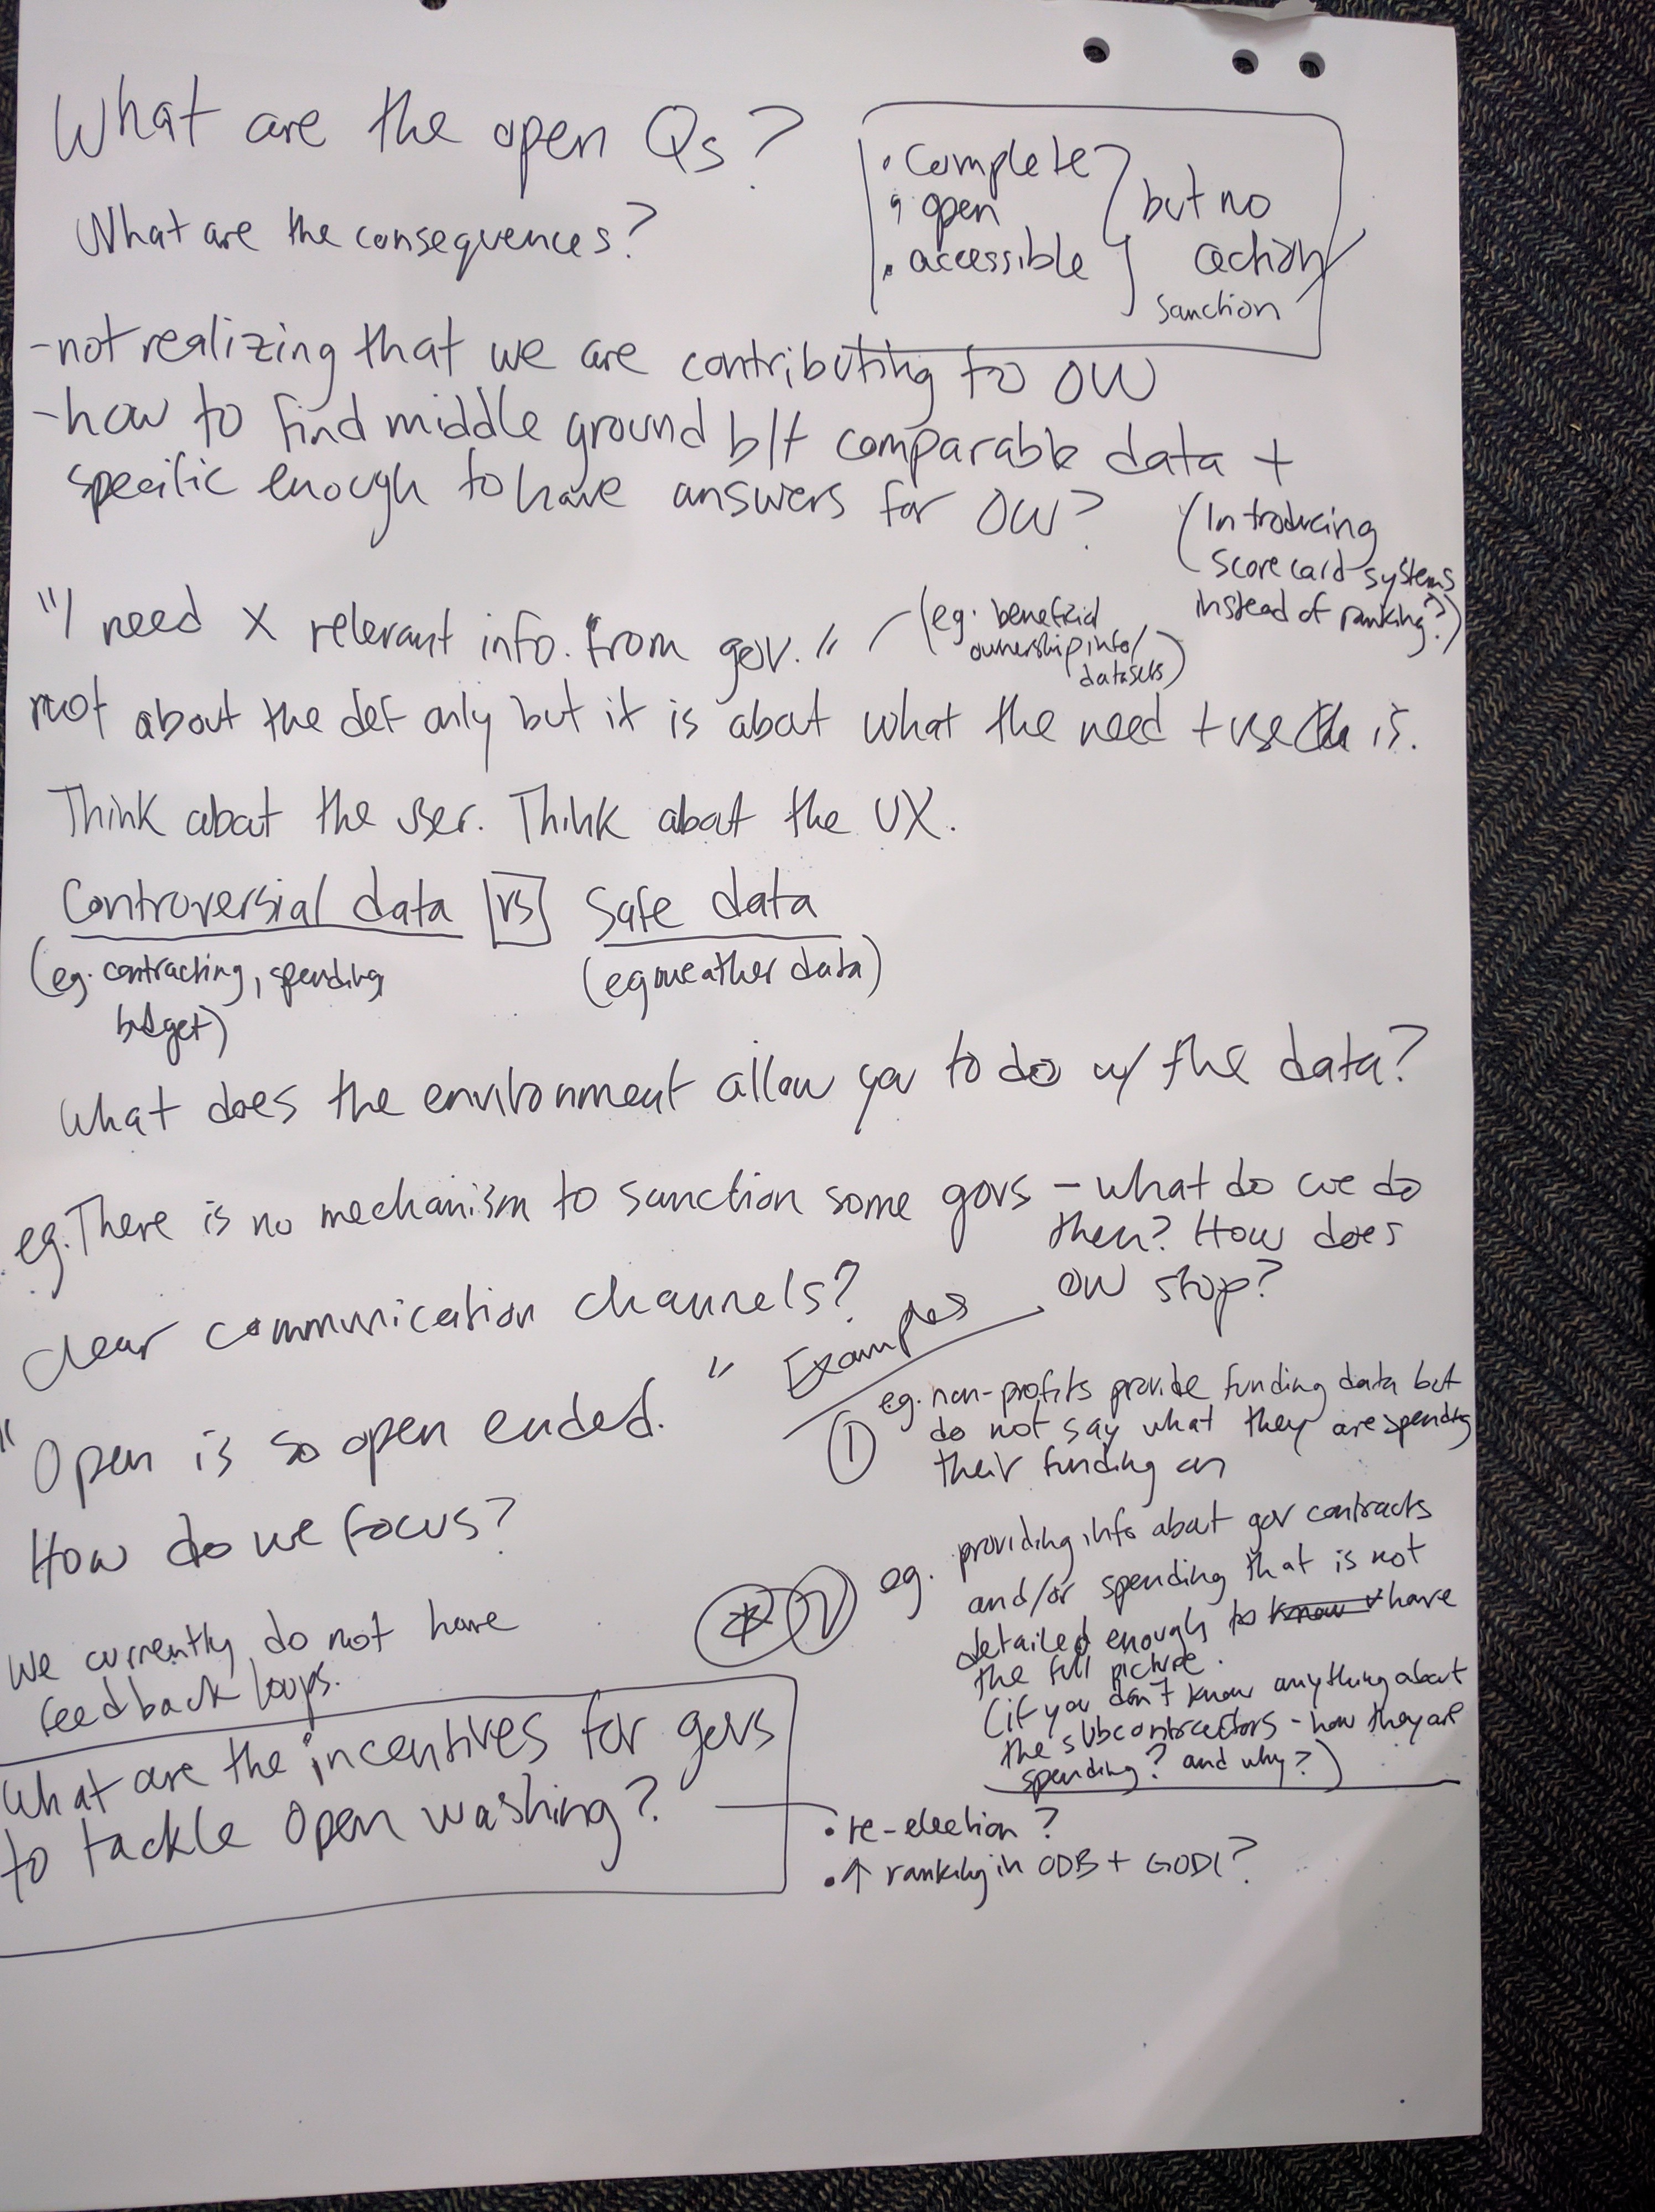 What are the open Qs?
What are the consequences?
• complete
• open
• accessible
but no
action/
sanction
-not realizing that we are contributing to OW
-how to find middle ground b/t comparable data +
specific enough to have answers for OW?
(Introducing
scorecard systems
instead of ranking?)
"I need X relevant info. from gov."
(eg. beneficial
ownership info/
datasets)
not about the def only but it is about what the need + use is.
Think about the user. Think about the UX.
Controversial data vs Safe data
(eg. contracting, spending
budget)
(eg weather data)
What does the environment allow you to do w/ the data?
eg. There is no mechanism to sanction some govs - what do we do
then? How does
OW stop?
clear communication channels?
"Open is so open ended."
How do we focus?
We currently do not have
feedback loops.
Examples
① eg. non-profits provide funding data but
do not say what they are spending
their funding on
* ② eg. providing info about gov contracts
and/or spending that is not
detailed enough to know have
the full picture.
(if you don't know anything about
the subcontractors - how they are
spending? and why?)
What are the incentives for govs
to tackle open washing?
• re-election?
• ↑ ranking in ODB + GODI?